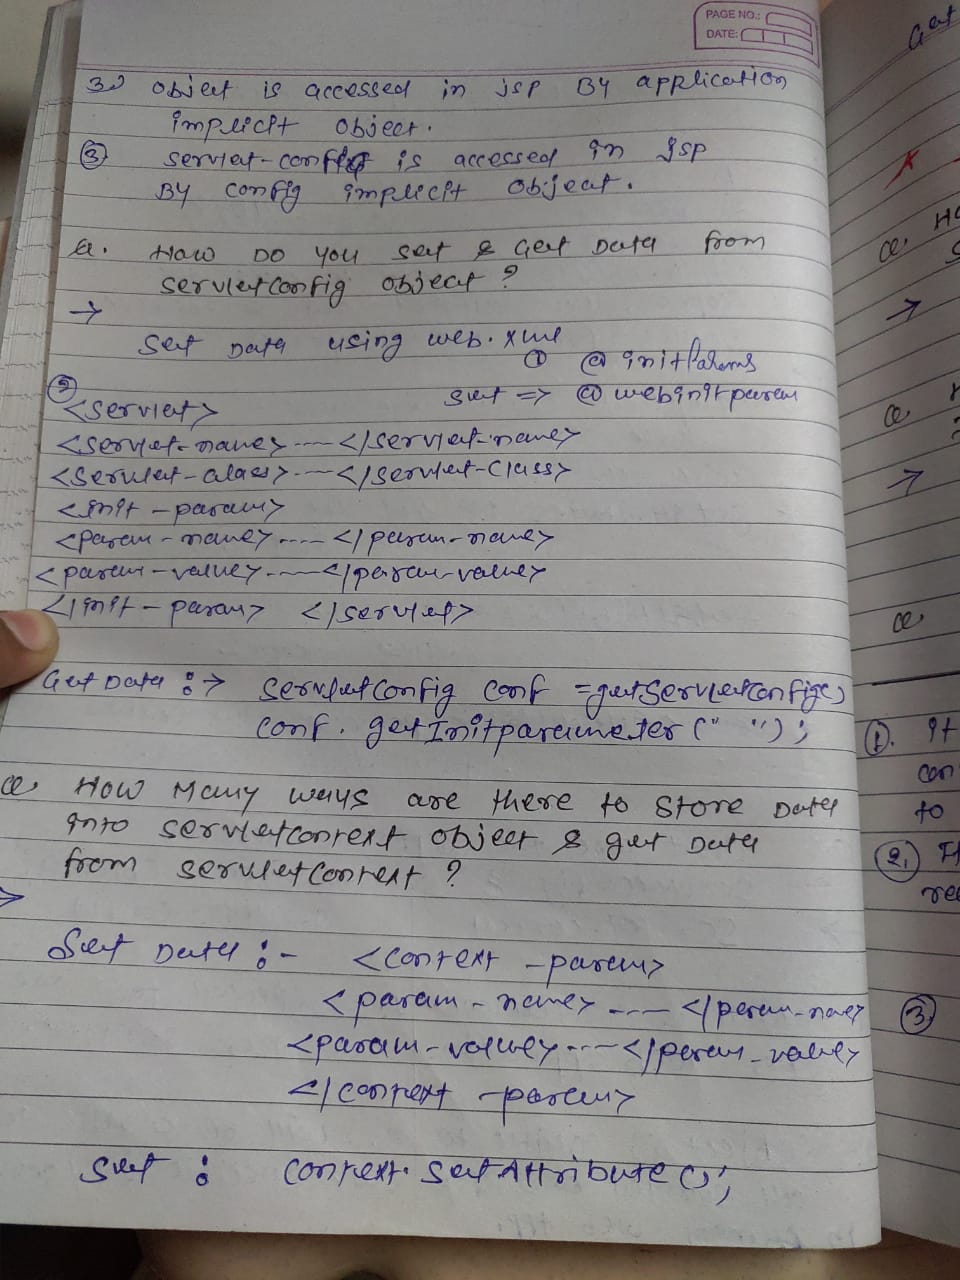 PAGE NO.:
DATE:
3) object is accessed in jsp By application
implicit object.
③ servlet-config is accessed in jsp
By config implicit object.
Q. How Do you set & Get Data from
servletconfig object ?
→
Set Data using web.xml
① @ initParams
② set => @ webinitparam
<servlet>
<servlet-name> ---- </servlet-name>
<servlet-class> --- </servlet-class>
<init-param>
<param-name> ---- </param-name>
<param-value> ---- </param-value>
</init-param> </servlet>
Get Data :→ servletconfig conf = getservletconfig()
conf. getInitparameter (" ");
Q. How Many ways are there to store Data
into servletcontext object & get Data
from servletcontext ?
→
Set Data :- <context-param>
<param-name> ---- </param-name>
<param-value> ---- </param-value>
</context-param>
Set : context. setAttribute ();
Get
Q. Ho
→
Q.
→
Q.
①. It
con
to
②.
③